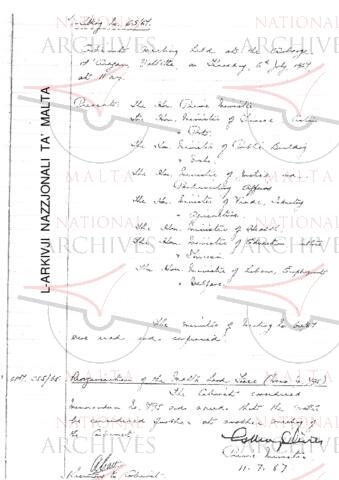 Meeting No. 65/67.
Cabinet Meeting held at the Auberge
d'Aragon Valletta, on Thursday, 6th July 1967
at 11 a.m.
Presents: The Hon. Prime Minister
The Hon. Minister of Finance
" Ports.
The Hon. Minister of Public Building
" Works.
The Hon. Minister of
Parliamentary Affairs
The Hon. Minister of Trade, Industry
" Agriculture.
The Hon. Minister of Health.
The Hon. Minister of Education
" Tourism.
The Hon. Minister of Labour, Employment
" Welfare.
The minutes of Meeting No. 64/67
were read and confirmed.
OPM. 255/66 Reorganisation of the Malta Land Force (Memo No. 495)
The Cabinet considered
Memorandum No. 495 and agreed that the matter
be considered further at another meeting of
the Cabinet.
Prime Minister
Secretary to Cabinet.
11.7.67
L-ARKIVJI NAZZJONALI TA' MALTA
NATIONAL ARCHIVES
MALTA